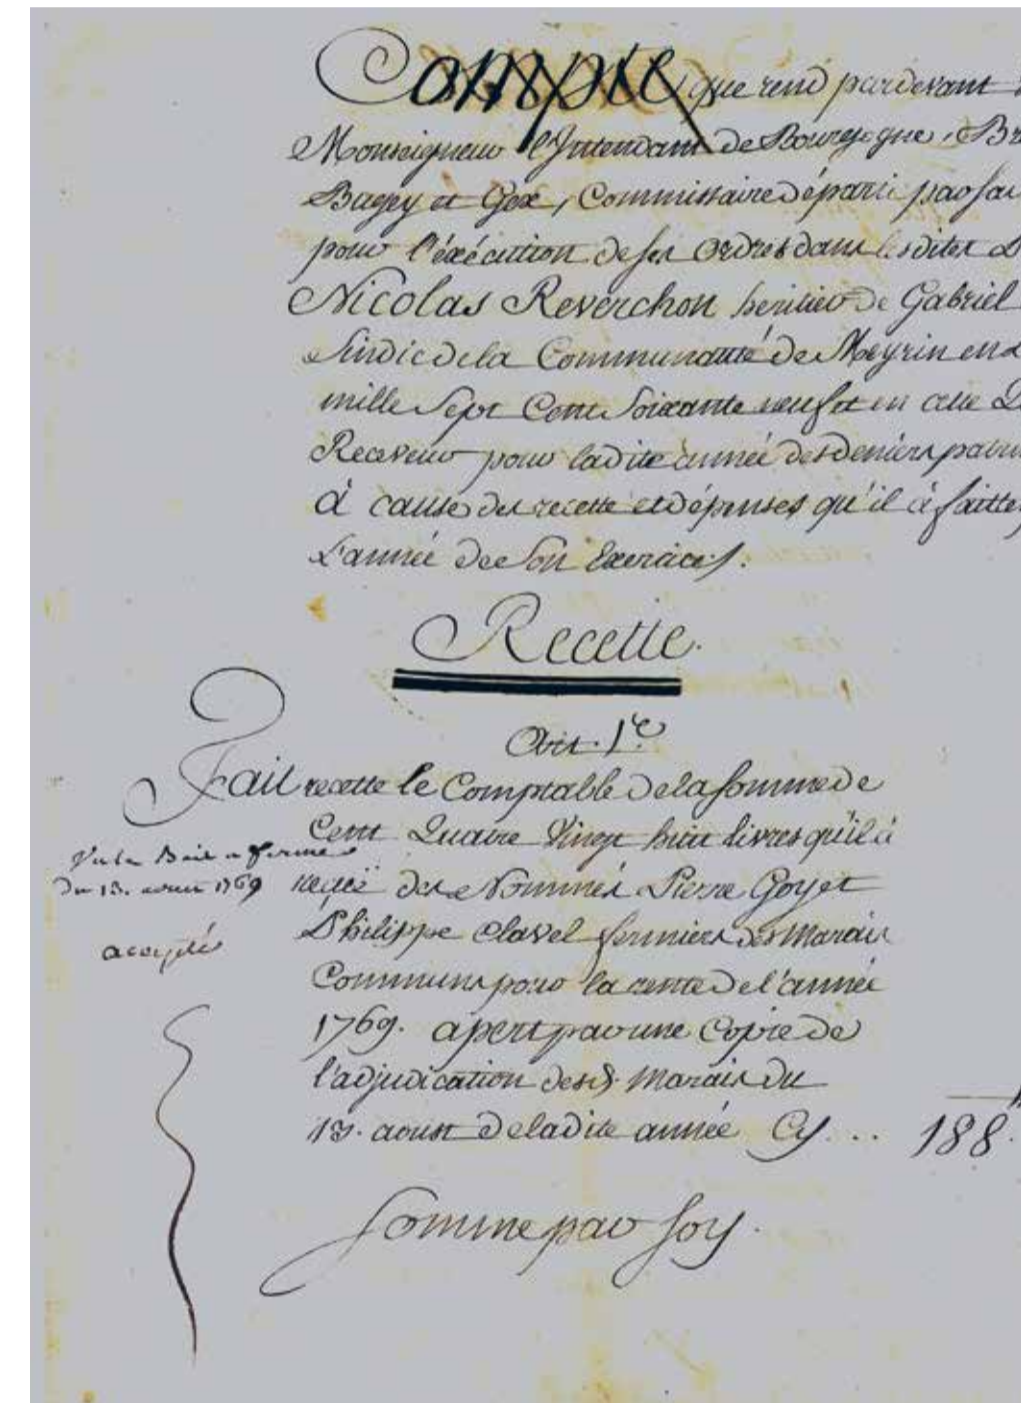 Compte que rend pardevant
Monseigneur l'Intendant de Bourgogne, Br
Bugey et Gex, Commissaire départi par Sa
pour l'éxécution de ses Ordres dans lesdites
Nicolas Reverchon heritier de Gabriel
Sindic de la Communauté de Meyrin en L
mille Sept Cent Soixante neuf et en cette Q
Receveur pour ladite année des deniers patrim
à cause des recette et dépenses qu'il à faitte
L'année de Son Exercice.
Recette.
Art. 1.er
Fait recette le Comptable de la somme de
Cent Quatre Vingt huit livres qu'il à
reçeü des Nommés Pierre Goyet
Philippe Clavel fermiers des Marais
Communs pour la rente de l'année
1769. apert par une Copie de
l'adjudication desd. Marais du
13. aoust de ladite année Cy ... 188
Vu le Bail a ferme
du 13. aoust 1769
accepté
Somme par soy.